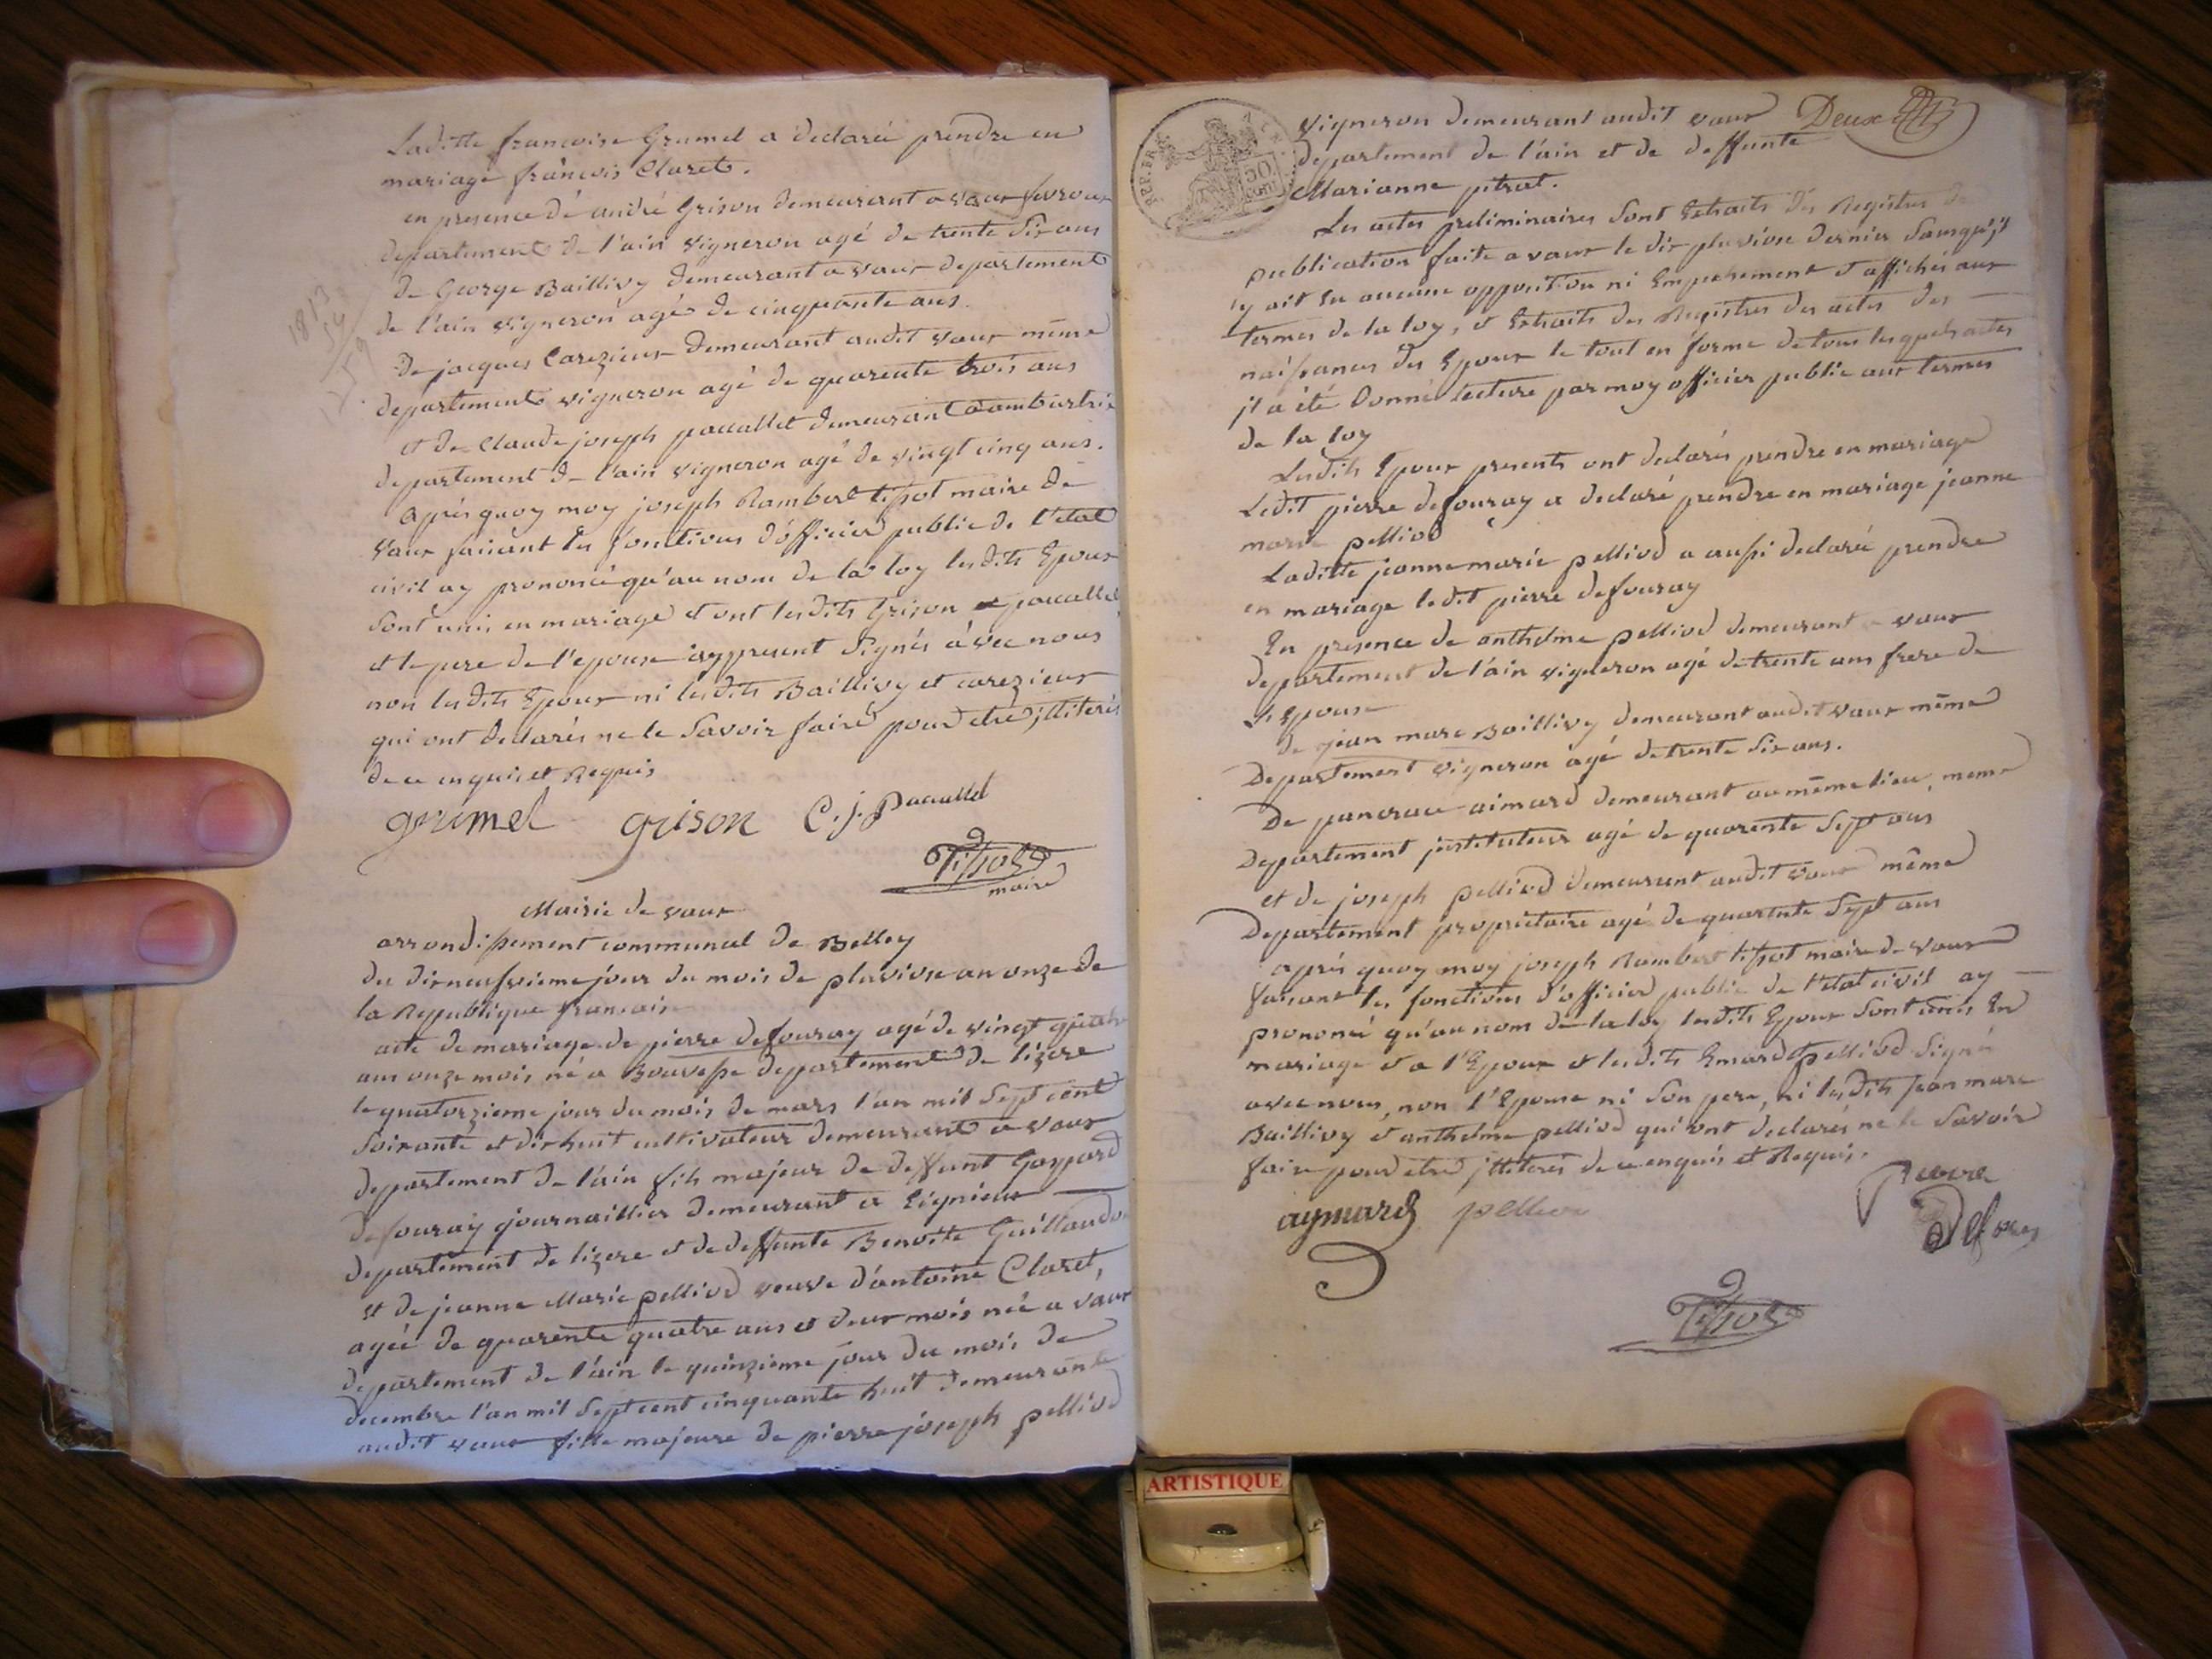 Laditte francoise Grumel a declaré prendre en
mariage françois Claret.
en presence dé andré Grison demeurant a vaux fevroux
departement de l'ain vigneron agé de trente six ans
de George Baillivy demeurant a vaux departement
de l'ain vigneron agé de cinquante ans.
De jacques Carezieux demeurant audit vaux même
departement vigneron agé de quarente trois ans
et de Claude joseph paccallet demeurant a ambutrix
departement de l'ain vigneron agé de vingt cinq ans.
après quoy moy joseph Rambert tissot maire de
Vaux faisant les fonctions d'officier public de l'etat
civil ay prononcé qu'au nom de la loy lesdits Epoux
sont unis en mariage et ont lesdits Grison paccallet
et le pere de l'epouse icy present signés avec nous
non lesdits Epoux ni lesdits Baillivy et carezieux
qui ont declarés ne le savoir faire pour etre jlliterés
de ce enquis et Requis
grumel grison C. j. Paccallet
Tissot
maire
Mairie de vaux
arrondissement communal de Belley
du dixneufvieme jour du mois de pluviose an onze de
la Republique francaise
acte de mariage de pierre defouray agé de vingt quatre
ans onze mois né a Bouvesse departement de lizere
le quatorzieme jour du mois de mars l'an mil sept cent
soixante et dix huit cultivateur demeurant a vaux
departement de l'ain fils majeur de deffunt Gaspard
defouray journaillier demeurant a
departement de lizere et de deffunte Benoite Guillaudon
et de jeanne Marie pelliod veuve d'antoine Claret,
agée de quarente quatre ans et deux mois née a vaux
departement de l'ain le quinzieme jour du mois de
decembre l'an mil sept cent cinquante huit demeurante
audit vaux fille majeure de pierre joseph pelliod
Deux
vigneron demeurant audit vaux
departement de l'ain et de deffunte
Marianne pitrat.
REP. FRA.
50
cent
Les actes preliminaires sont Extraits des Registres de
publication faite a vaux le dix pluviose dernier sans qu'il
y ait eu aucune opposition ni Empechement et affichés aux
termes de la loy, et Extraits des Registres des actes des
naissances des Epoux le tout en forme de tous lesquels actes
jl a été donné lecture par moy officier public aux termes
de la loy
Lesdits Epoux presents ont declarés prendre en mariage
Ledit pierre defouray a declaré prendre en mariage jeanne
marie pelliod
Laditte jeanne marie pelliod a aussi declaré prendre
en mariage ledit pierre defouray
En presence de anthelme pelliod demeurant a vaux
departement de l'ain vigneron agé de trente ans frere de
l'Epouse
de jean marc Baillivy demeurant audit vaux même
Departement vigneron agé de trente six ans.
De pancrace aimard demeurant au même lieu, meme
Departement jnstituteur agé de quarente sept ans
et de joseph pelliod demeurant audit vaux même
Departement proprietaire agé de quarente sept ans
après quoy moy joseph Rambert tissot maire de vaux
faisant les fonctions d'officier public de l'etat civil ay
prononcé qu'au nom de la loy lesdits Epoux sont unis En
mariage et a l'Epoux et lesdits Emard et pelliod signé
avec nous, non l'Epouse ni son pere, ni lesdits jean marc
Baillivy et anthelme pelliod qui ont declarés ne le savoir
faire pour etre jlliterés de ce enquis et Requis.
aymard pelliod pierre
Tissot
ARTISTIQUE